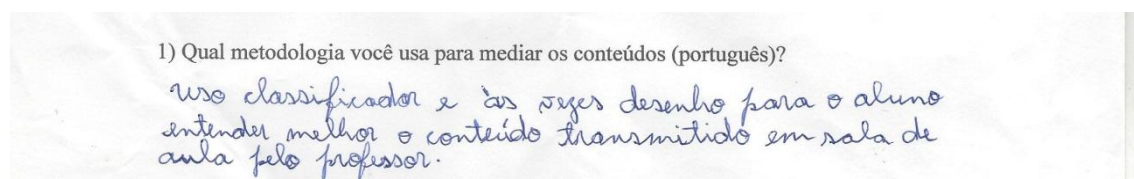 1) Qual metodologia você usa para mediar os conteúdos (português)?
uso classificador e às vezes desenho para o aluno
entender melhor o conteúdo transmitido em sala de
aula pelo professor.